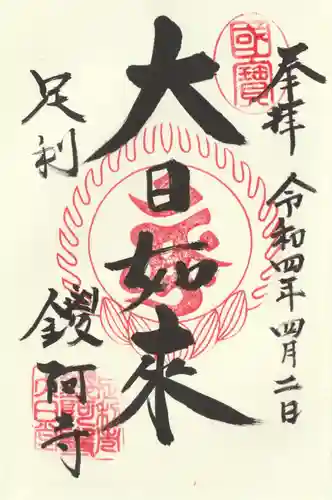 奉拝
令和四年四月二日
大日如来
足利
鑁阿寺
国寳